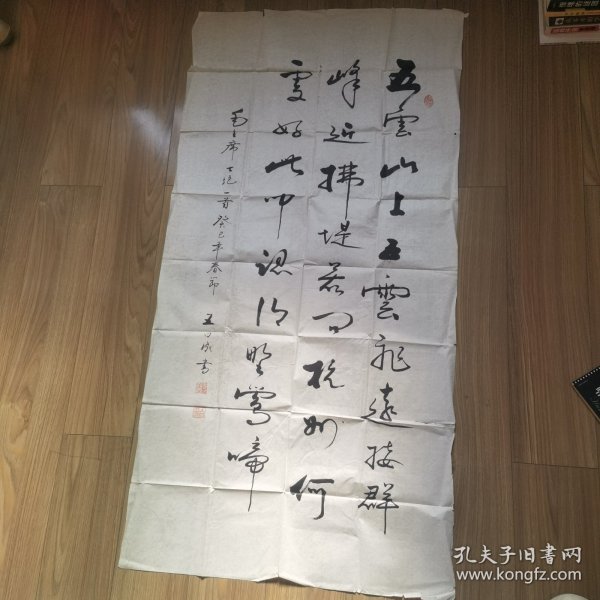 五雲山上五雲飛遠接群
峰近拂堤若问杭州何
處好此中認得野鶯啼
毛主席七绝一首癸巳年春节 王 成书
孔夫子旧書网
www.kongfz.com